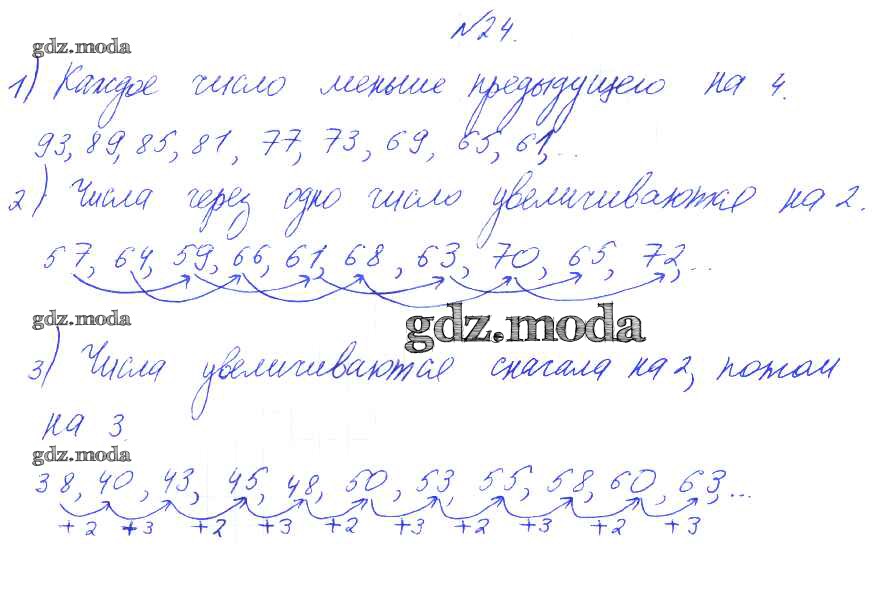 №24.
gdz.moda
1) Каждое число меньше предыдущего на 4.
93, 89, 85, 81, 77, 73, 69, 65, 61, ...
2) Числа через одно число увеличиваются на 2.
57, 64, 59, 66, 61, 68, 63, 70, 65, 72, ...
gdz.moda
gdz.moda
3) Числа увеличиваются сначала на 2, потом
на 3.
gdz.moda
38, 40, 43, 45, 48, 50, 53, 55, 58, 60, 63, ...
+2 +3 +2 +3 +2 +3 +2 +3 +2 +3